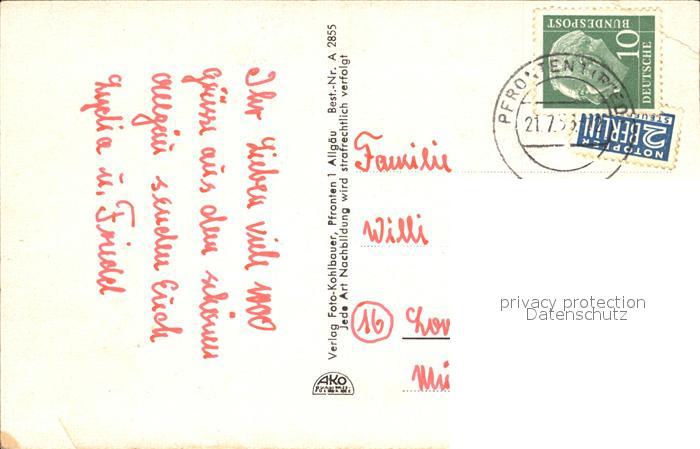 Ihr Lieben viele 1000
Grüsse aus dem schönen
Allgäu senden Euch
Lydia u. Friedel
Verlag Foto-Kohlbauer, Pfronten 1 Allgäu Best.-Nr. A 2855
Jede Art Nachbildung wird strafrechtlich verfolgt
AKO
DEUTSCHE
BUNDESPOST
10
PFRONTEN (RIED)
21.7.5
NOTOPFER
2 BERLIN
STEUER
Familie
Willi
(16)
privacy protection
Datenschutz